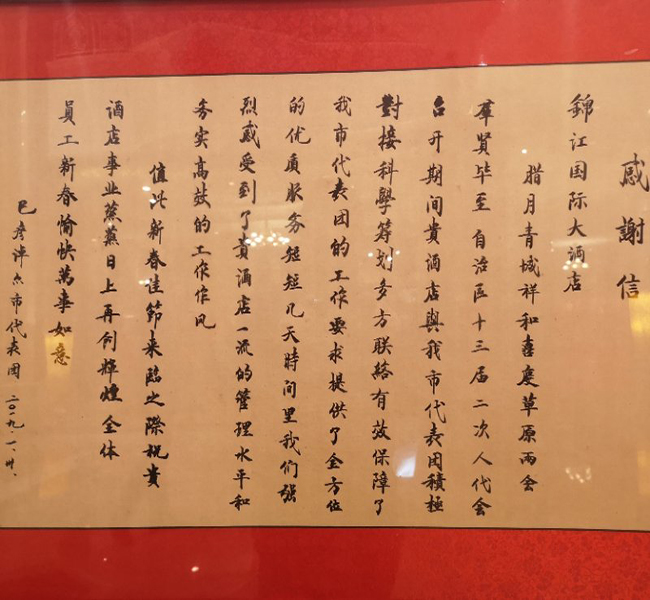 感謝信
錦江国际大酒店
腊月青城祥和喜慶草原两会
羣賢毕至自治区十三届二次人代会
召开期间貴酒店與我市代表团積極
對接科學筹划多方联絡有效保障了
我市代表团的工作要求提供了全方位
的优质服务短短几天時间里我们强
烈感受到了貴酒店一流的管理水平和
务实高效的工作作风
值此新春佳節来臨之際祝貴
酒店事业蒸蒸日上再创輝煌全体
員工新春愉快萬事如意
巴彦淖尔市代表团二〇一九.一.卅.